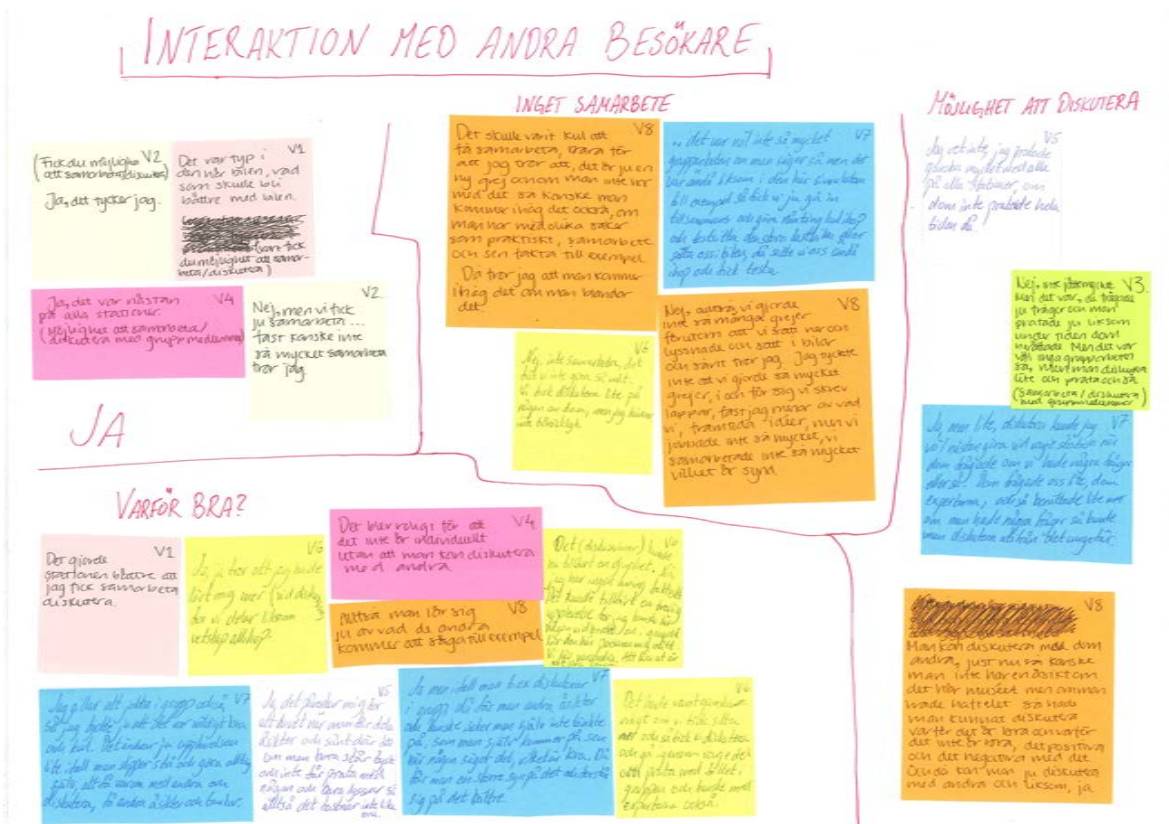 INTERAKTION MED ANDRA BESÖKARE
INGET SAMARBETE
MÖJLIGHET ATT DISKUTERA
V2
(Fick du möjlighet
att samarbeta/diskutera)
Ja, det tycker jag.
V1
Det var typ i
den här bilen, vad
som skulle bli
bättre med bilen.
du möjlighet att samar-
beta/diskutera)
V4
Ja, det var nästan
på alla stationer.
(Möjlighet att samarbeta/
diskutera med gruppmedlemmar)
V2
Nej, men vi fick
ju samarbeta...
fast kanske inte
så mycket samarbeta
tror jag.
JA
V8
Det skulle varit kul att
få samarbeta, bara för
att jag tror att, det är ju en
ny grej och om man inte har
med det så kanske man
kommer ihåg det också, om
man har med olika saker
som praktiskt, samarbete
och sen fakta till exempel.
Då tror jag att man kommer
ihåg det om man blandar
det.
V7
.. det var väl inte så mycket
grupparbeten om man säger så men det
var ändå liksom i den här simulatorn
till exempel så fick vi ju gå in
tillsammans och göra någonting
V6
Nej, inte samarbeta, det
fick vi inte göra så mkt.
Vi fick diskutera lite på
någon av dem, men jag
V8
Nej, alltså vi gjorde
inte så många grejer
förutom att vi satt ner och
lyssnade och satt i bilar
och sånt tror jag. Jag tyckte
inte att vi gjorde så mycket
grejer, i och för sig vi skrev
lappar, fast jag menar av vad
vi, framtida idéer, men vi
jobbade inte så mycket, vi
samarbetade inte så mycket
vilket är synd.
V5
Jag vet inte, jag pratade
ganska mycket med alla
på alla stationer, om
dom inte pratade hela
tiden då.
V3
Nej, inte jättemycket
Men det var, de frågade
ju frågor och man
pratade ju liksom
under tiden dom
berättade. Men det var
väl inga grupparbeten
så, men man
lite och prata och så
(samarbeta/diskutera
med gruppmedlemmar)
V7
Ja men lite, diskutera kunde jag
väl nästan göra vid varje station när
dom frågade om vi hade några frågor
eller så. Dom frågade oss lite, dom
experterna, och så berättade lite mer
om man hade några frågor så kunde
man diskutera
V8
Man kan diskutera med dom
andra, just nu så kanske
man inte har en åsikt om
det här museet men om man
hade haft det så hade
man kunnat diskutera
varför det är bra och varför
det inte är bra, det positiva
och det negativa med det
Också kan man ju diskutera
med andra och liksom, ja
VARFÖR BRA?
V1
Det gjorde
stationen bättre att
jag fick samarbeta
diskutera.
V6
Ja, jag tror att jag hade
lärt mig mer
för vi delar liksom
vetskap allihop.
V4
Det blev roligt för att
det inte är individuellt
utan att man kan diskutera
med andra.
V8
Alltså man lär sig
ju av vad de andra
kommer att säga till exempel
V6
Det (diskussioner) hade
V7
Jag gillar att jobba i grupp också
så jag tyckte att det var väldigt bra
och kul. Det ändrar ju upplevelsen
lite ifall man slipper stå och göra allting
själv, att få vara med andra och
diskutera, få andra åsikter och tankar.
V5
Ja, det påverkar mig för
åsikter och sånt där då
om man bara står tyst
och inte får prata med
någon och bara lyssnar så
alltså det
V7
Ja men ifall man t.ex. diskuterar
i grupp då får man andra åsikter
och kanske saker man själv inte tänkte
på, som man själv kommer på sen
när någon sagt det, vilket är bra. Då
får man en större syn på det och förstår
sig på det bättre.
V6
Det hade varit ganska
roligt om vi fick sitta
och så fick vi diskutera
och gå igenom varje del
och prata med folket i
gruppen och kanske med
experterna också.